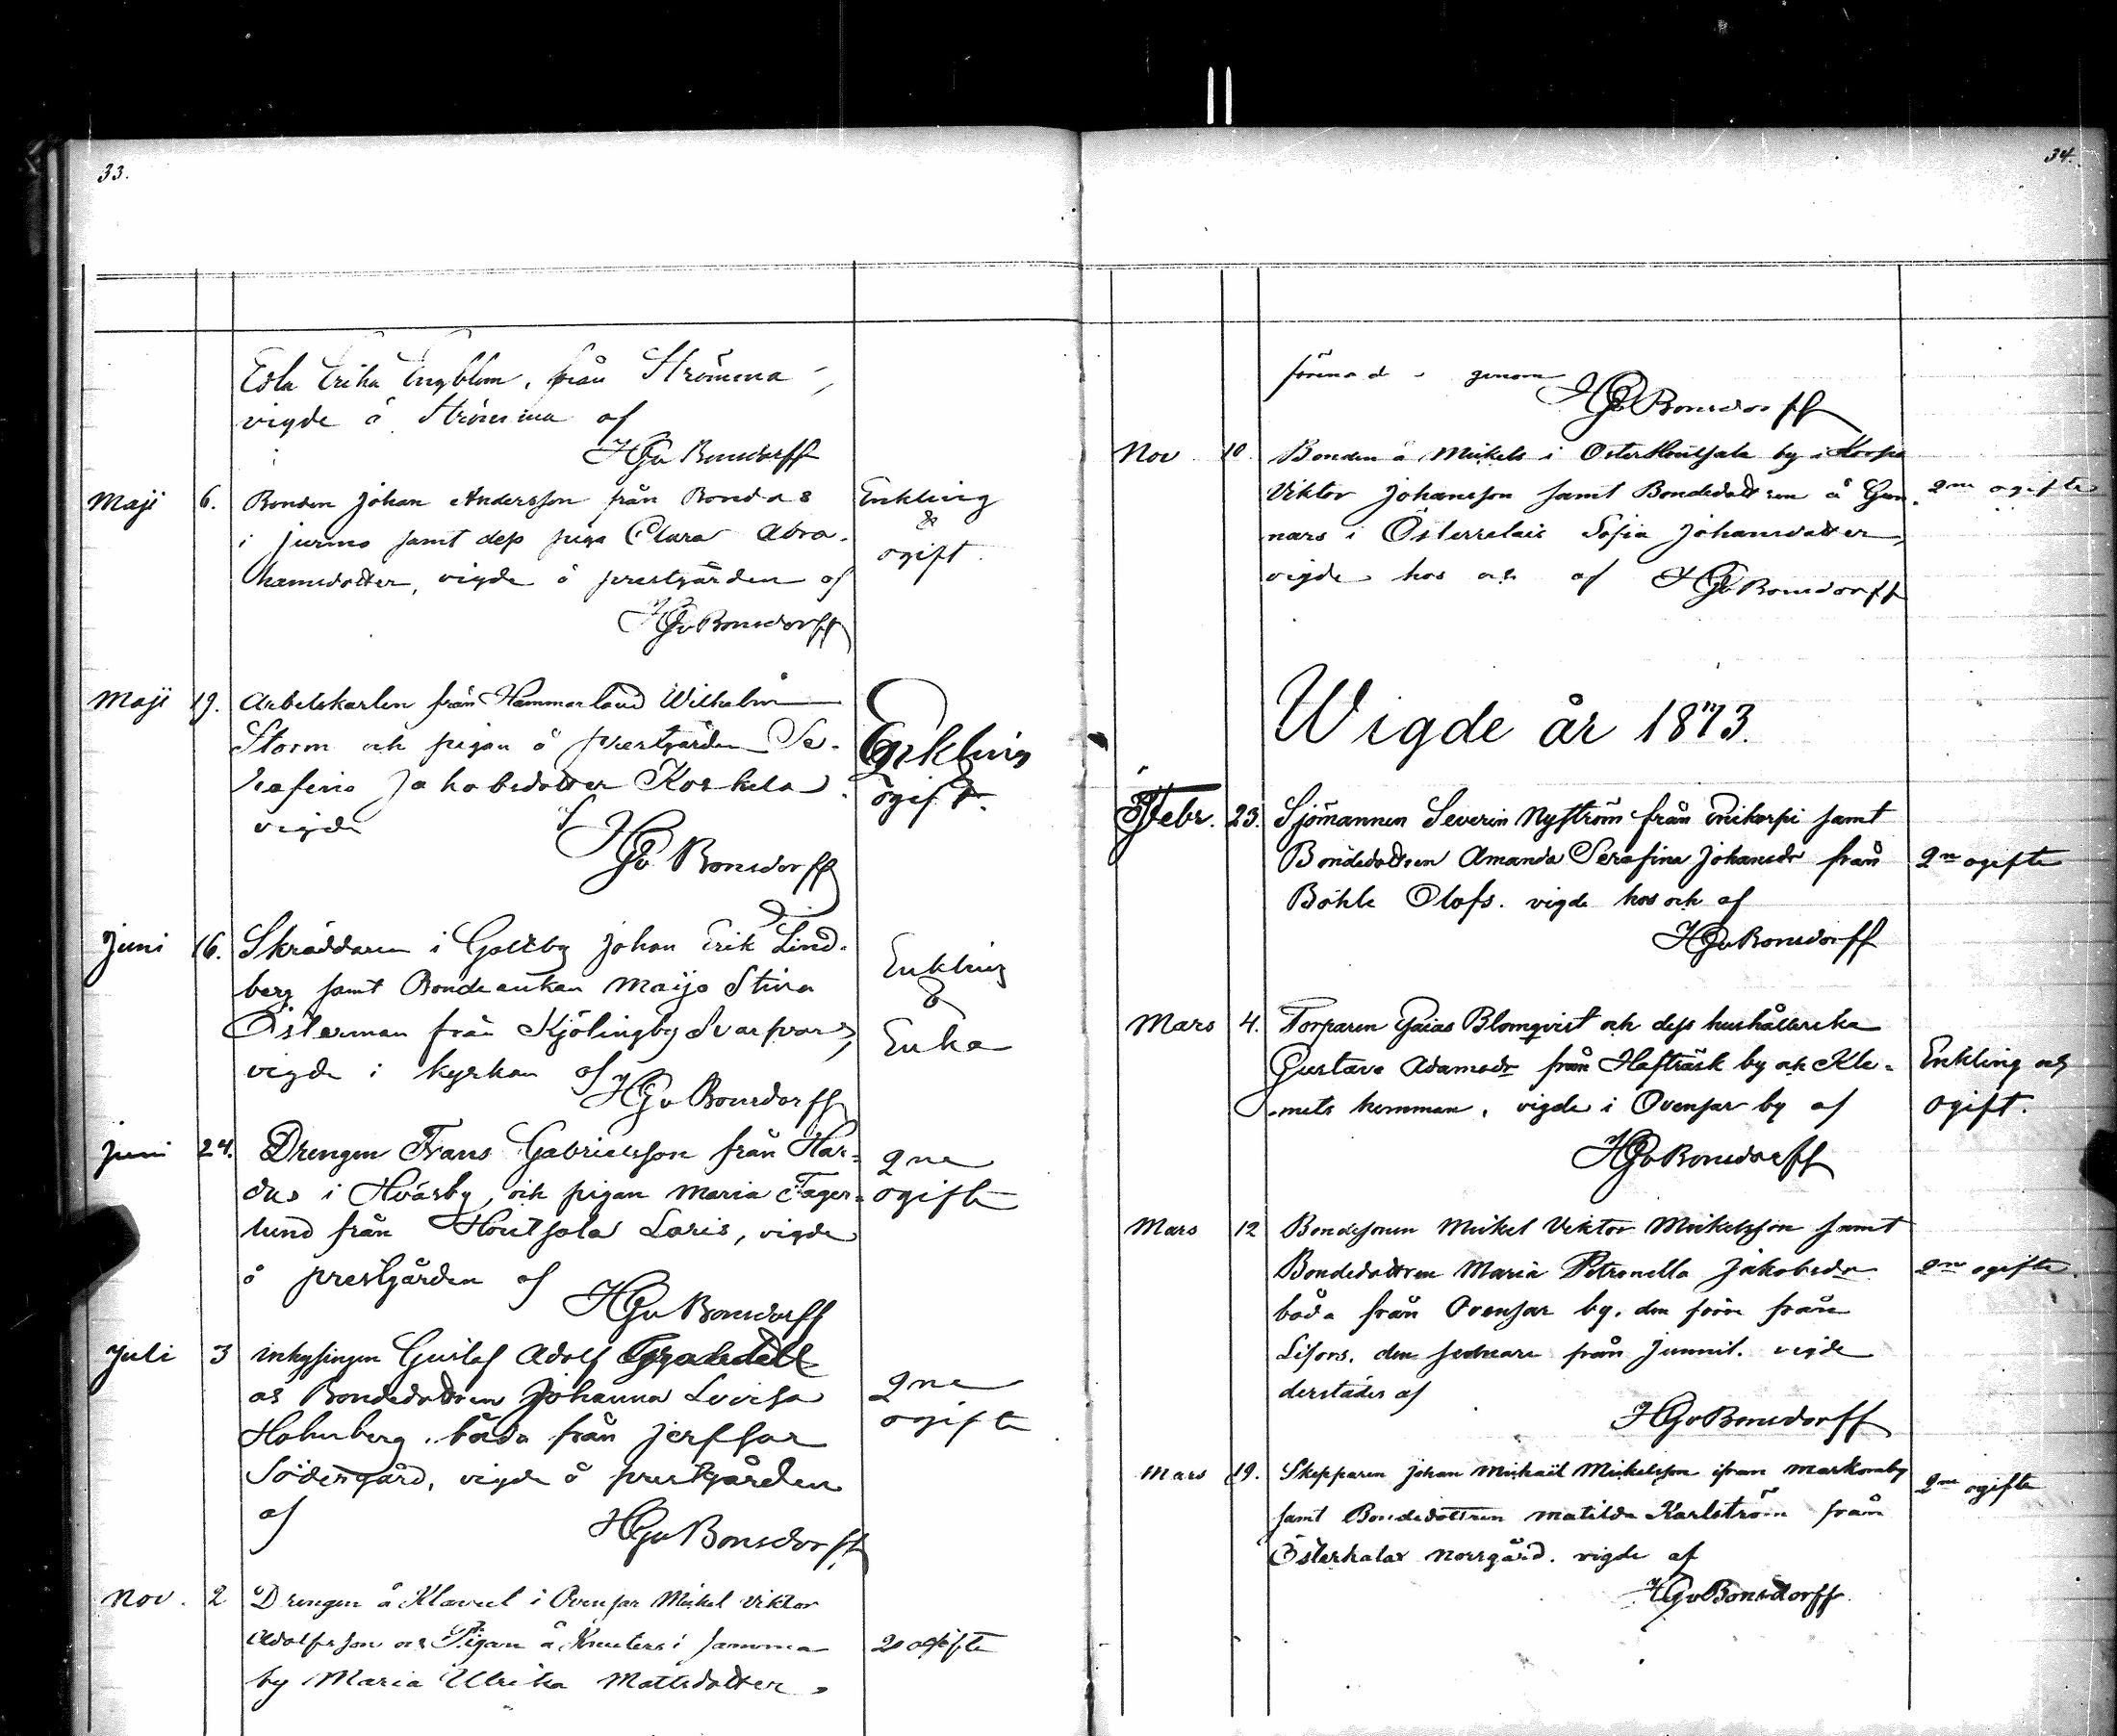 33.
Eola Erika Engblom, från Strömma,
vigde å Strömma af
HGvBonsdorff
Maji 6. Bonden Johan Andersson från Bondas Enkling
i Jurmo samt dess piga Clara Abra- &
hamsdotter, vigde å prestgården af ogift.
HGvBonsdorff
Maji 19. Arbetskarlen från Hammarland Wilhelm
Storm och pigan å prestgården Se- Enkling
rafina Jakobsdotter Koskela &
vigde ogift.
HGvBonsdorff
Juni 16. Skräddaren i Goltby Johan Erik Lind-
berg samt Bondeenkan Maija Stina Enkling
Österman från Kjölingby Svarfvars, &
vigde i kyrkan af Enka
HGvBonsdorff
Juni 24. Drengen Frans Gabrielsson från Här- 2ne
das i Hväsby, och pigan Maria Fager- ogifte
lund från Houtsala Laris, vigde
å prestgården af
HGvBonsdorff
Juli 3 inhysingen Gustaf Adolf
och Bondedottren Johanna Lovisa 2ne
Holmberg, båda från Jerfsor ogifte
Södergård, vigde å prestgården
af
HGvBonsdorff
Nov. 2 Drengen å Klaveel i Ovensor Mikel Viktor
Adolfsson och Pigan å Knuters i samma 2e ogifte
by Maria Ulrika Mattsdotter,
34.
förmad genom
HGvBonsdorff
Nov 10 Bonden å Mickels i Österhoutsala by i Korpo
Viktor Johansson samt Bondedottren å Gun- 2ne ogifte
nars i Österretais Sofia Johansdotter,
vigde hos och af HGvBonsdorff
Wigde år 1873.
Febr. 23. Sjömannen Severin Nyström från Enikorpi samt
Bondedottren Amanda Serafina Johansdr från 2ne ogifte
Böhle Olofs. vigde hos och af
HGvBonsdorff
Mars 4. Torparen Esaias Blomqvist och dess hushållerska
Gustava Adamsdr från Hafträsk by och Kle- Enkling och
mets hemman, vigde i Ovensor by af ogift.
HGvBonsdorff
Mars 12 Bondesonen Mickel Viktor Mickelsson samt
Bondedottren Maria Petronella Jakobsdr 2ne ogifte.
båda från Ovensor by, den förre från
Lisors, den sednare från Junnil. vigde
derstädes af
HGvBonsdorff
Mars 19. Skepparen Johan Michaël Mickelsson ifrån Markomby
samt Bondedottren Matilda Karlström från 2ne ogifte
Österkalax Norrgård. vigde af
HGvBonsdorff